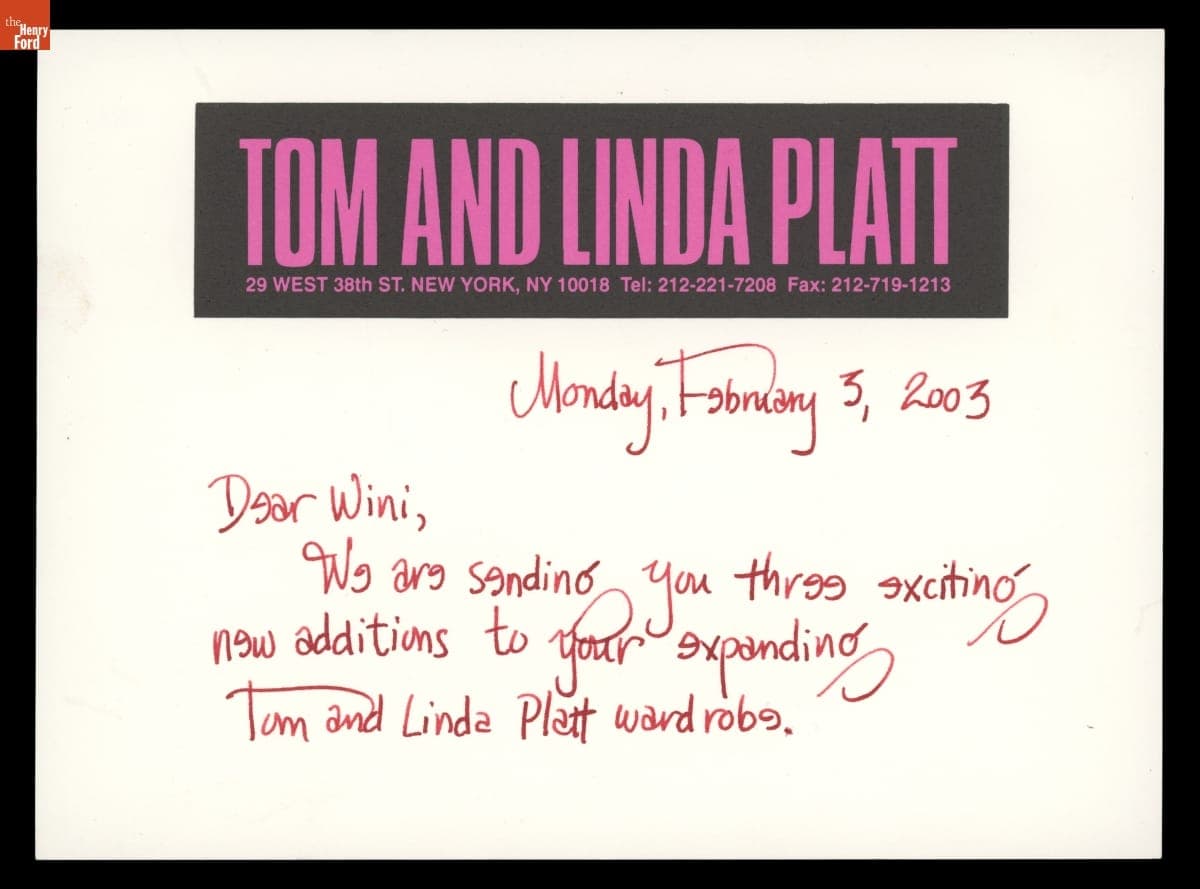 the
Henry
Ford
TOM AND LINDA PLATT
29 WEST 38th ST. NEW YORK, NY 10018 Tel: 212-221-7208 Fax: 212-719-1213
Monday, February 3, 2003
Dear Wini,
We are sending you three exciting
new additions to your expanding
Tom and Linda Platt wardrobe.